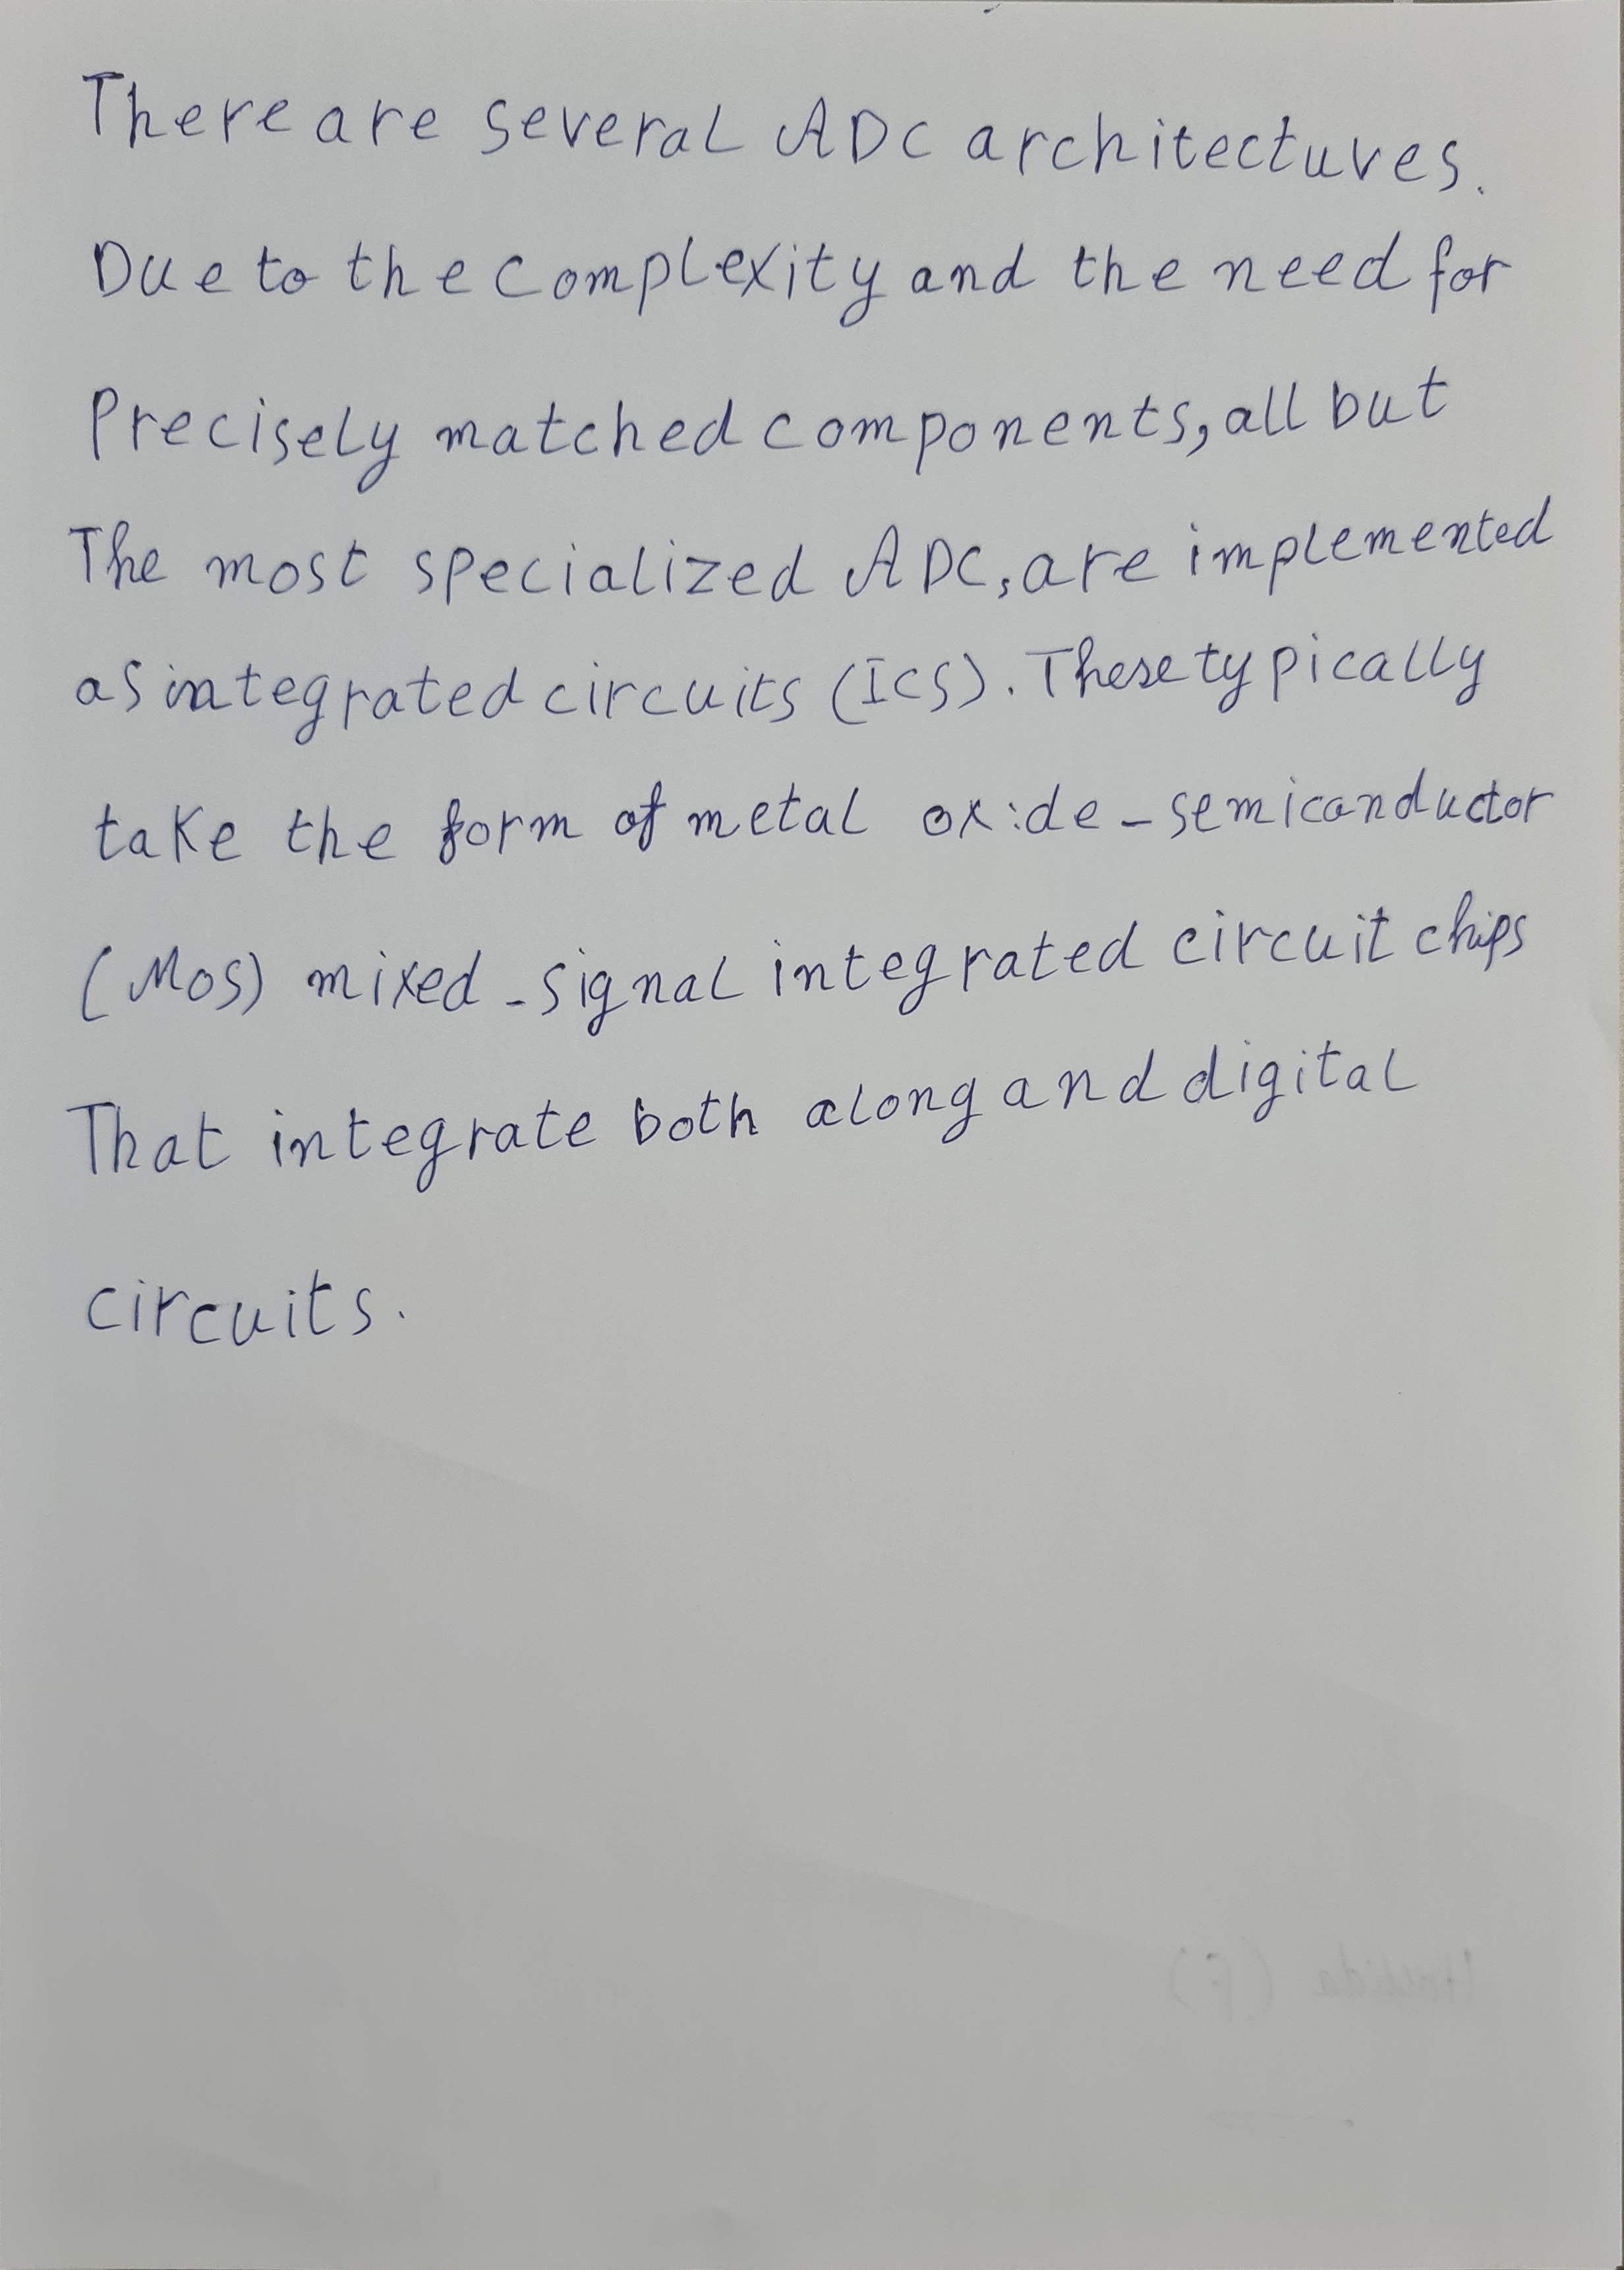 There are several ADC architectures.
Due to the complexity and the need for
Precisely matched components, all but
The most specialized ADC, are implemented
as integrated circuits (ICS). These typically
take the form of metal oxide-semiconductor
(Mos) mixed-signal integrated circuit chips
That integrate both along and digital
circuits.